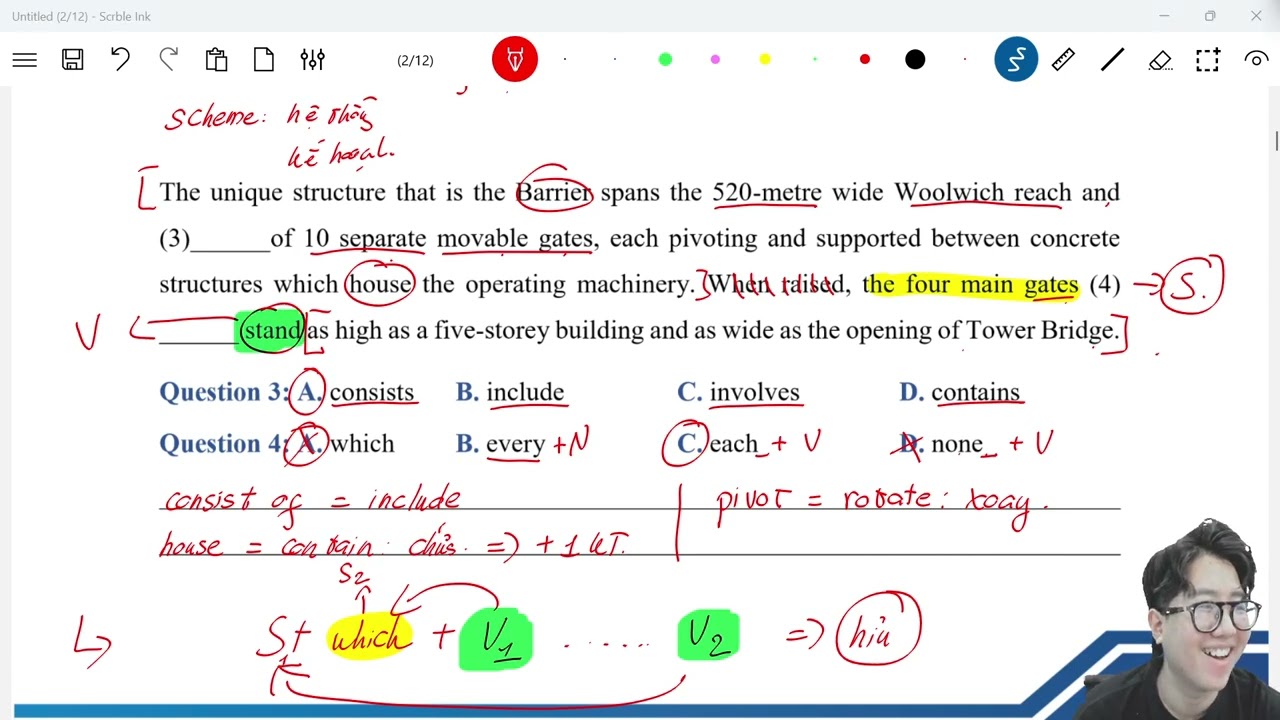 Untitled (2/12) - Scrble Ink
(2/12)
scheme: hệ thống
kế hoạch.
[The unique structure that is the Barrier spans the 520-metre wide Woolwich reach and
(3)______of 10 separate movable gates, each pivoting and supported between concrete
structures which house the operating machinery.] When raised, the four main gates (4) → S.
V ______ stand [as high as a five-storey building and as wide as the opening of Tower Bridge.]
Question 3: A. consists B. include C. involves D. contains
Question 4: A. which B. every + N C. each + V D. none + V
consist of = include | pivot = rotate: xoay.
house = contain: chứa. => + 1 KT.
S2
S1 + which + V1 ...... V2 => hiểu